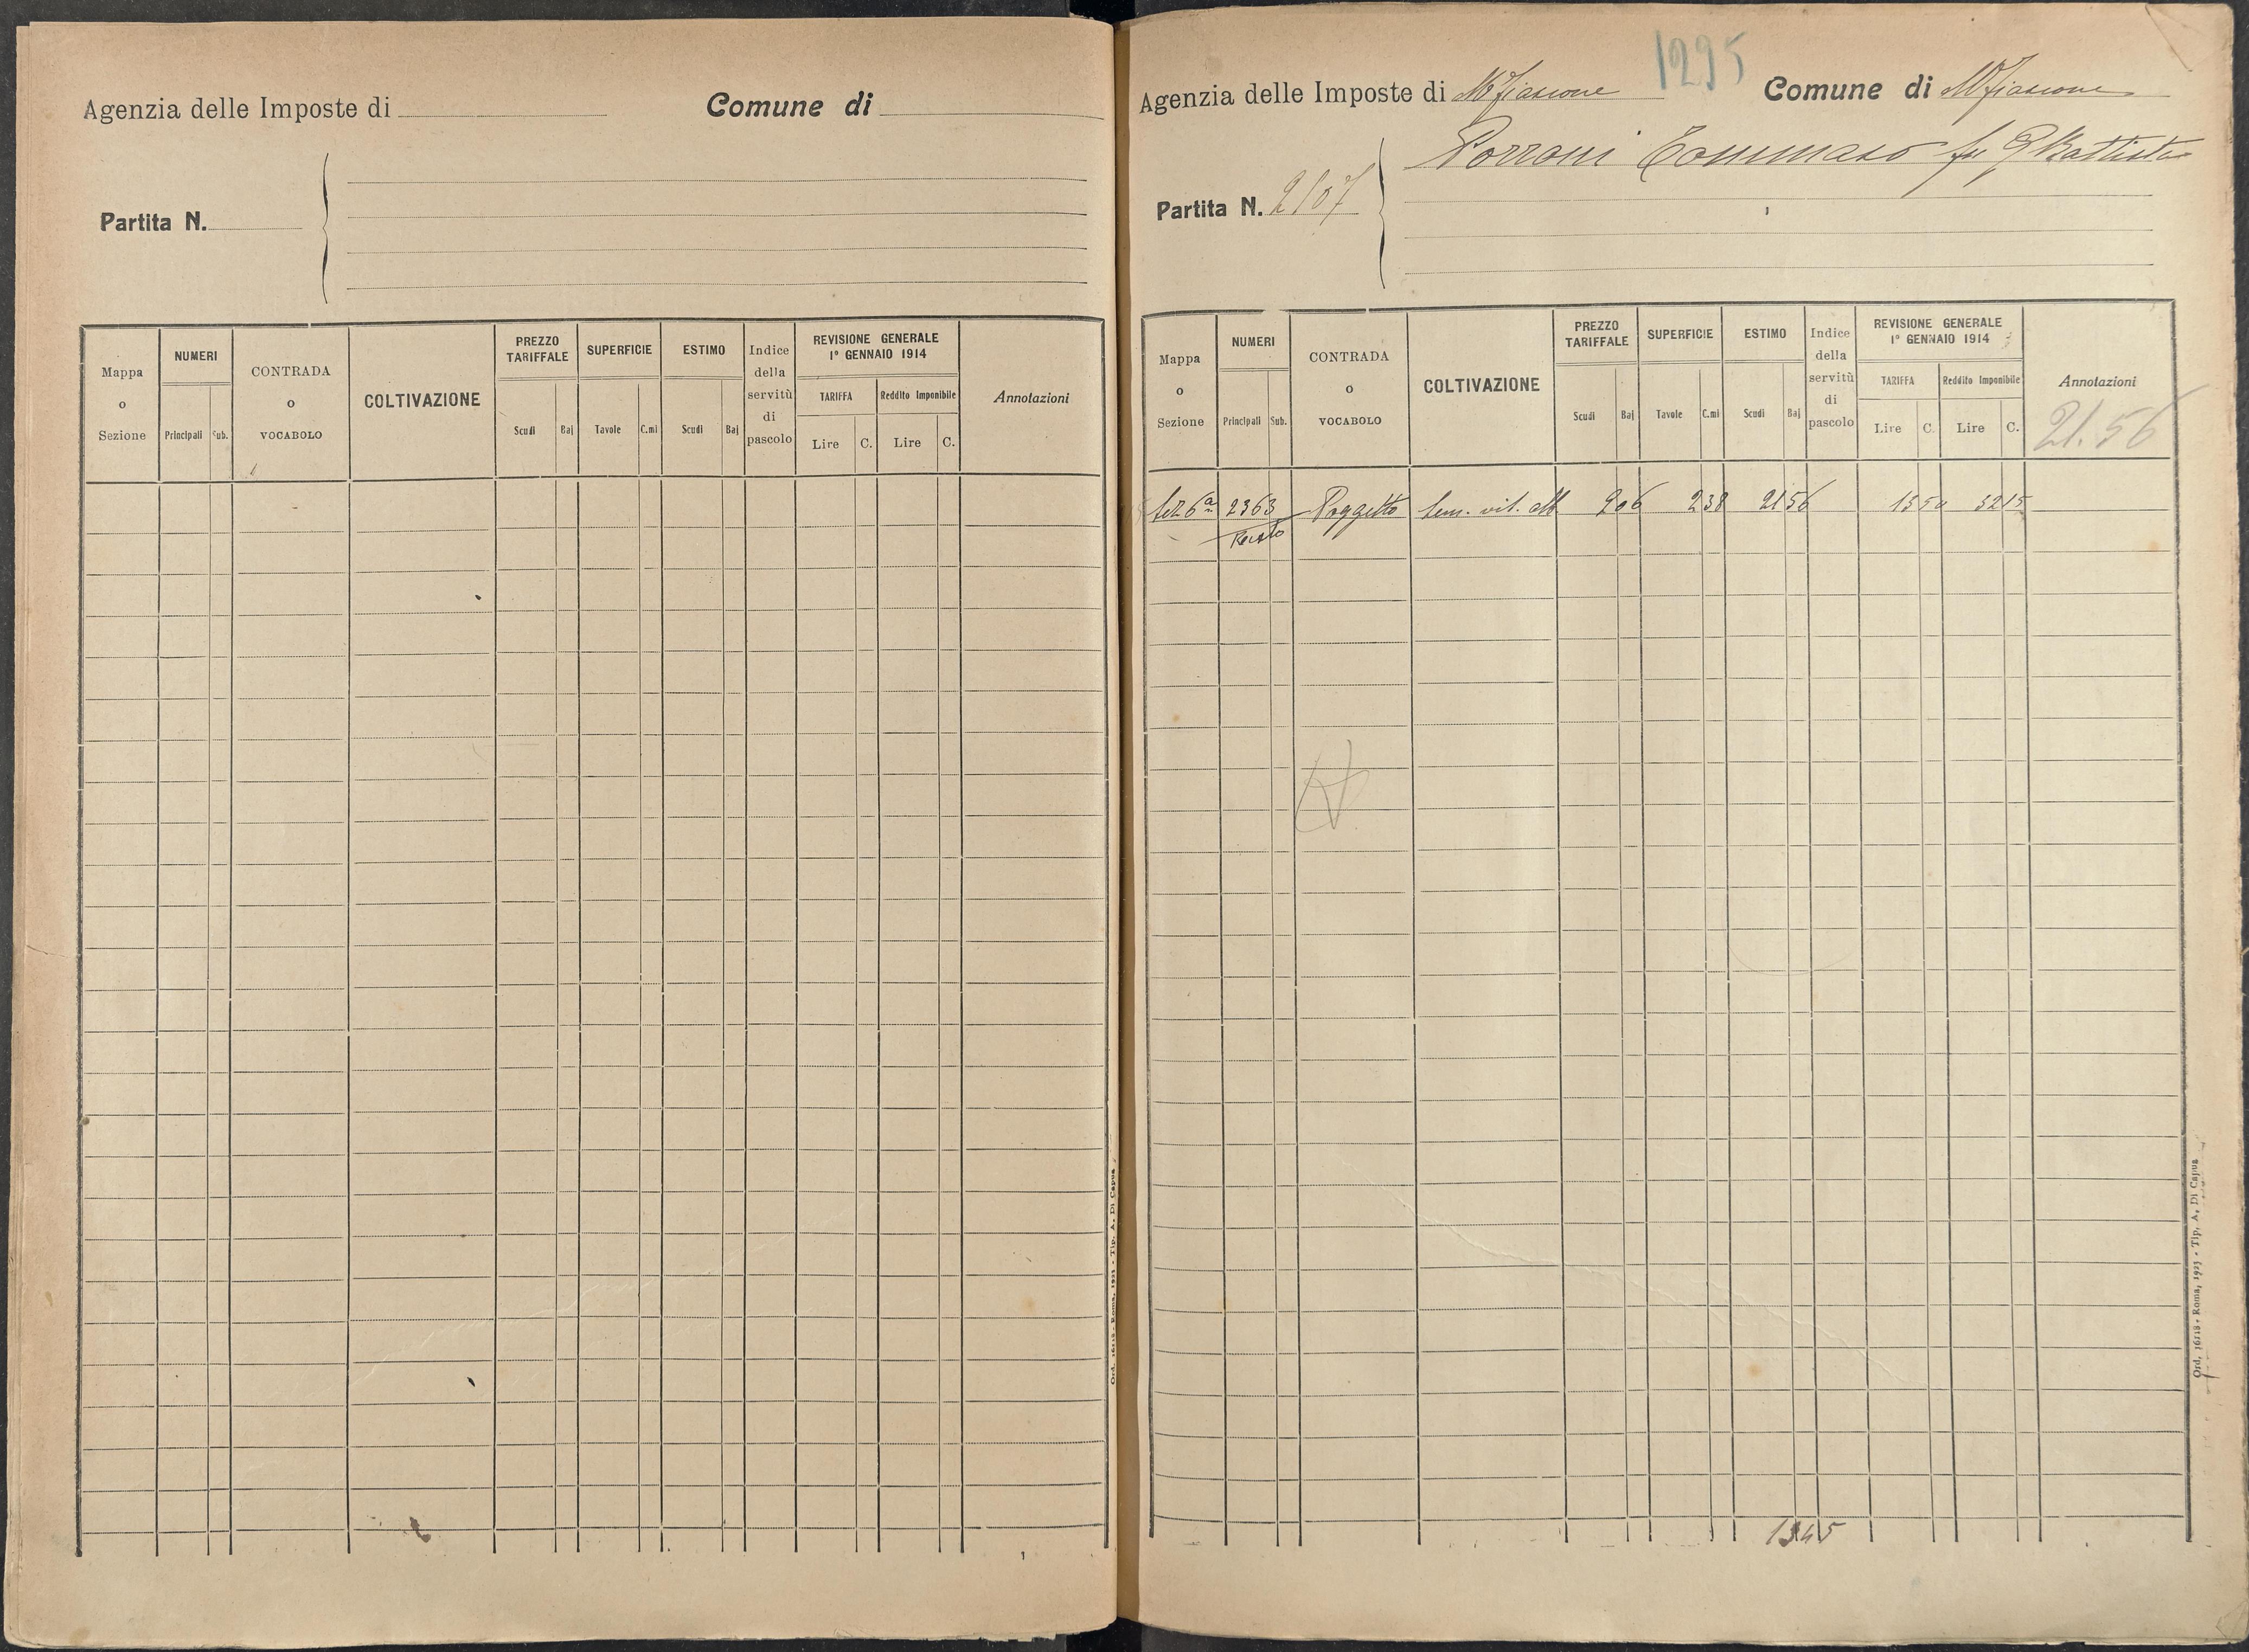 Agenzia delle Imposte di
Comune di
Partita N.
Mappa o Sezione
NUMERI
Principali
Sub.
CONTRADA o VOCABOLO
COLTIVAZIONE
PREZZO TARIFFALE
Scudi
Baj
SUPERFICIE
Tavole
C.mi
ESTIMO
Scudi
Baj
Indice della servitù di pascolo
REVISIONE GENERALE
1° GENNAIO 1914
TARIFFA
Lire
C.
Reddito Imponibile
Lire
C.
Annotazioni
Ord. 16118 - Roma, 1923 - Tip. A. Di Capua
1295
Agenzia delle Imposte di Mfiascone
Comune di Mfiascone
Porroni Tommaso fu GBattista
Partita N. 2107
Mappa o Sezione
NUMERI
Principali
Sub.
CONTRADA o VOCABOLO
COLTIVAZIONE
PREZZO TARIFFALE
Scudi
Baj
SUPERFICIE
Tavole
C.mi
ESTIMO
Scudi
Baj
Indice della servitù di pascolo
REVISIONE GENERALE
1° GENNAIO 1914
TARIFFA
Lire
C.
Reddito Imponibile
Lire
C.
Annotazioni
21.56
Sez 6a 2363 Poggetto Sem. vit. alb 906 238 2156 1350 3215
Resto
1345
Ord. 16118 - Roma, 1923 - Tip. A. Di Capua